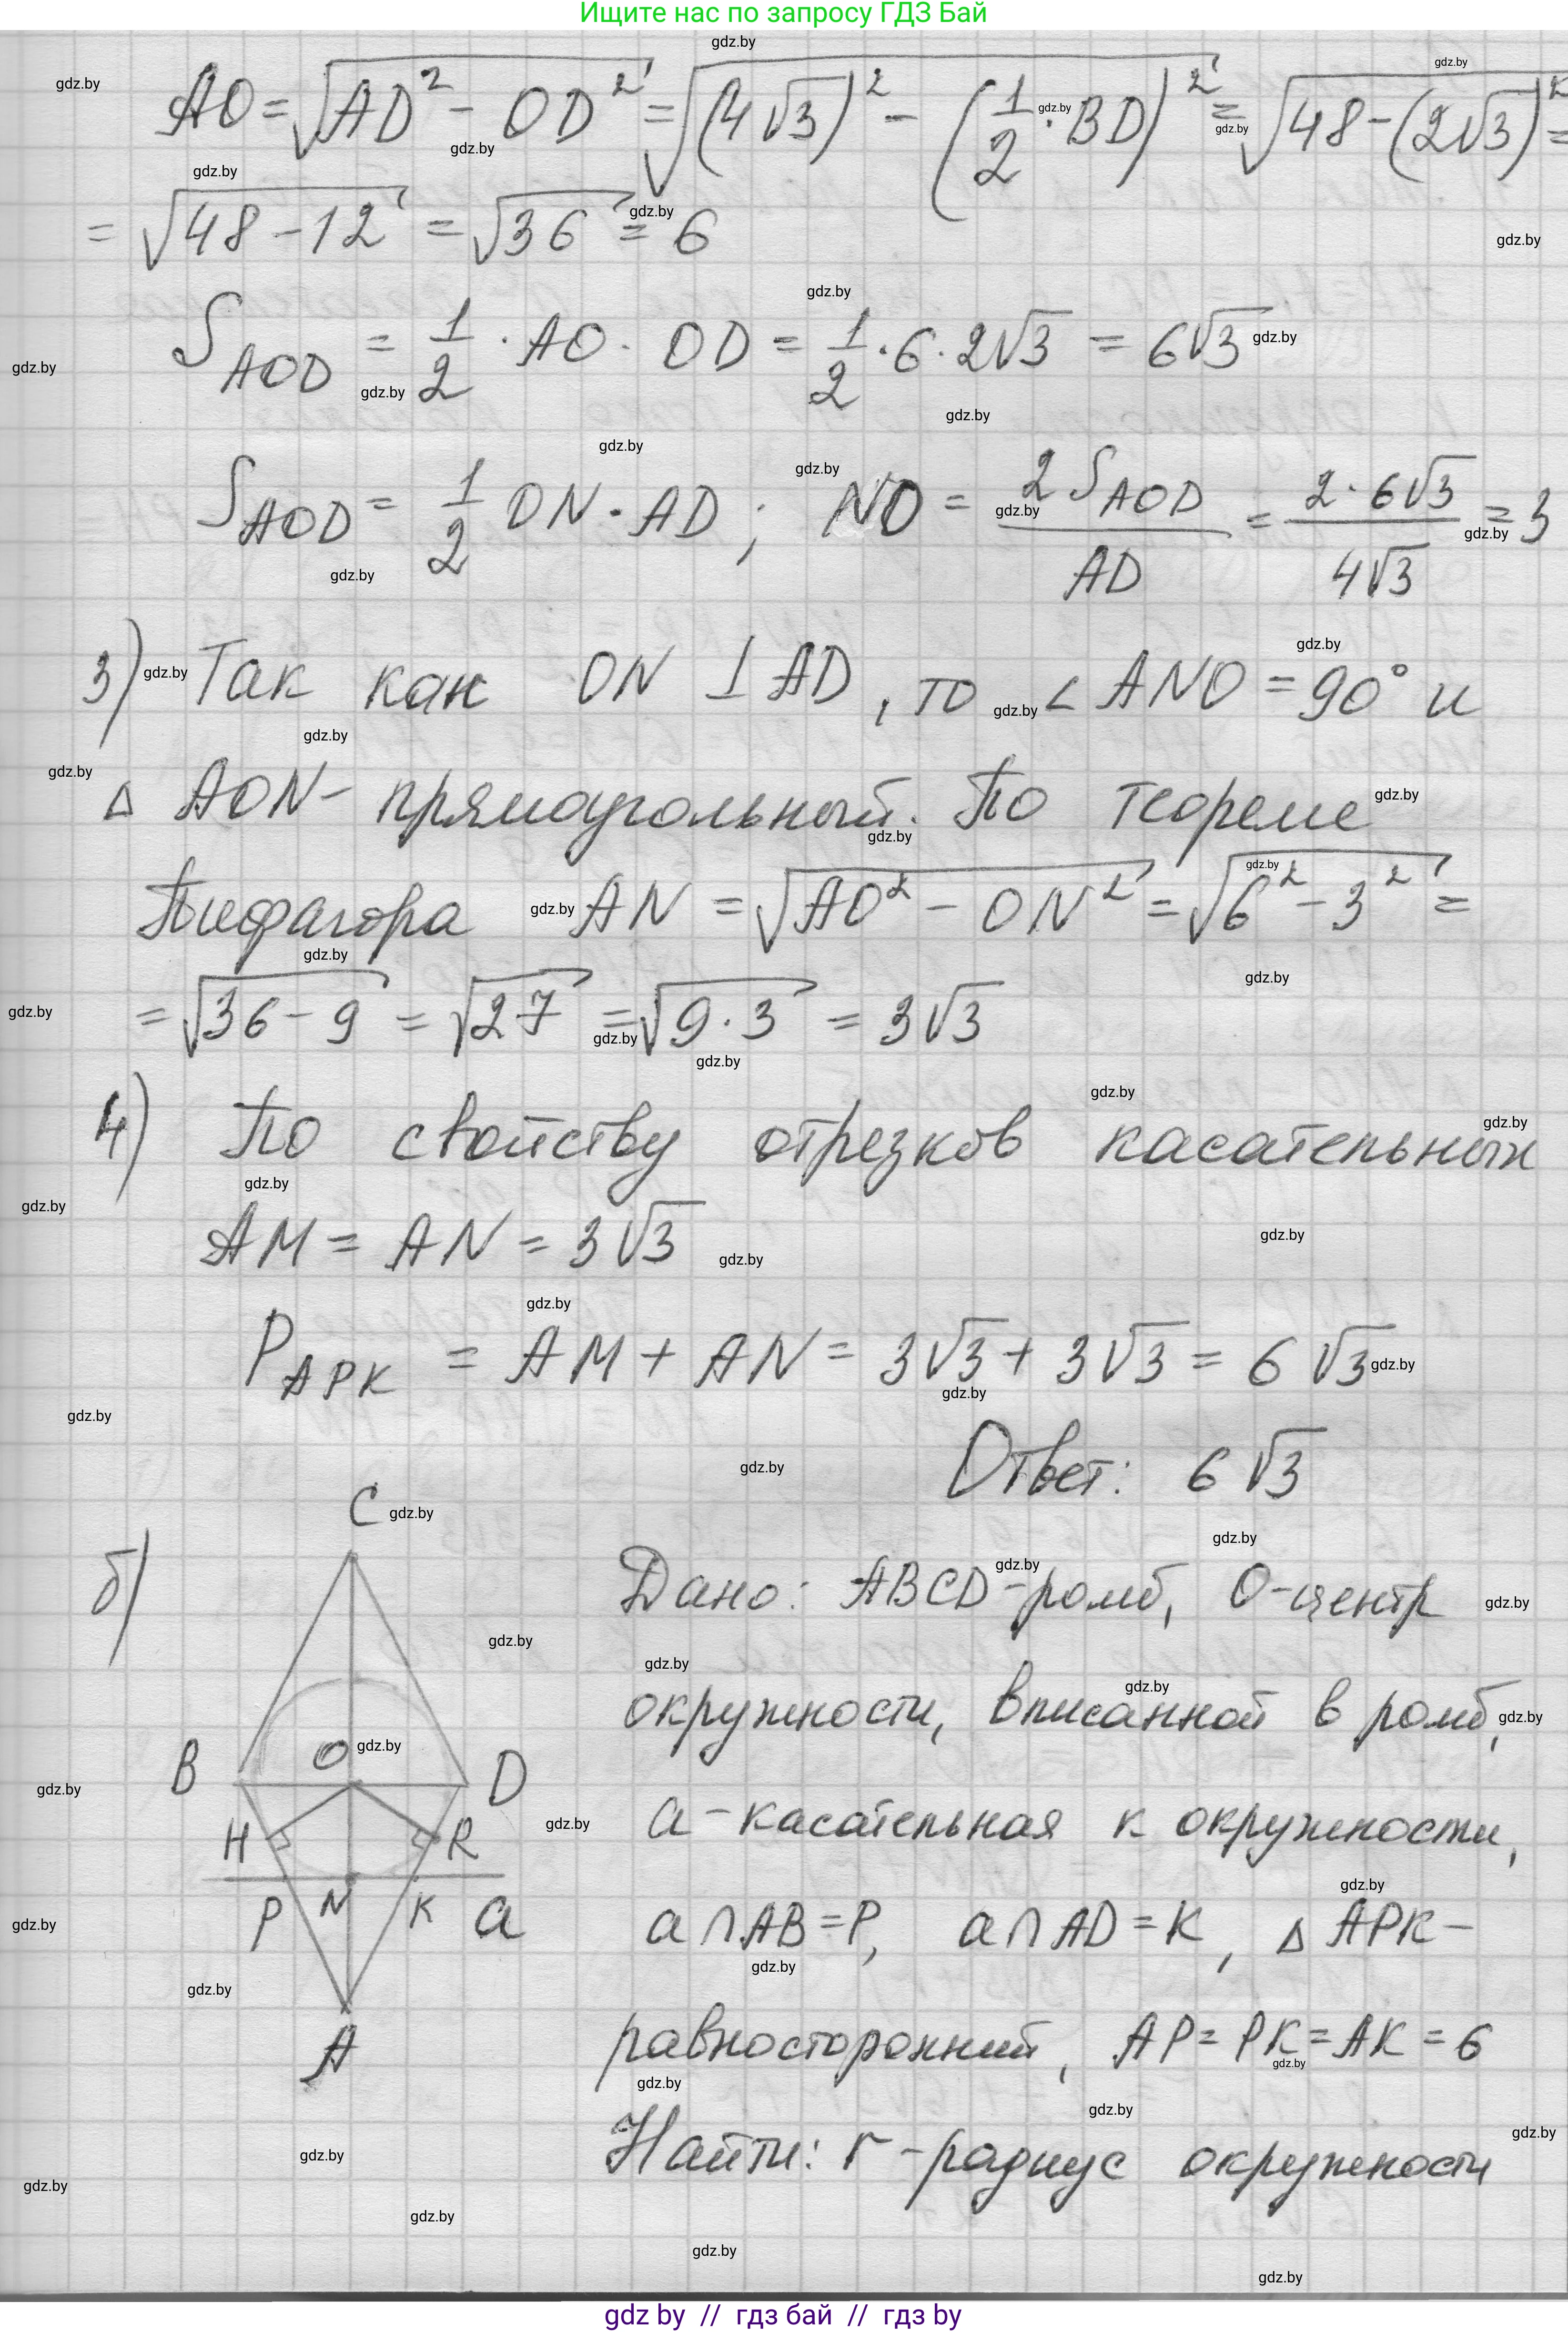 Ищите нас по запросу ГДЗ Бай
AO = √(AD² - OD²) = √((4√3)² - (1/2 · BD)²) = √(48 - (2√3)²) =
= √(48 - 12) = √36 = 6
S AOD = 1/2 · AO · OD = 1/2 · 6 · 2√3 = 6√3
S AOD = 1/2 ON · AD ; NO = 2 S AOD / AD = 2 · 6√3 / 4√3 = 3
3) Так как ON ⊥ AD, то ∠ ANO = 90° и
Δ AON - прямоугольный. По теореме
Пифагора AN = √(AO² - ON²) = √(6² - 3²) =
= √(36 - 9) = √27 = √(9 · 3) = 3√3
4) По свойству отрезков касательных
AM = AN = 3√3
P APK = AM + AN = 3√3 + 3√3 = 6√3
Ответ: 6√3
б)
C
B
O
D
H
R
P
N
K
a
A
Дано: ABCD - ромб, O - центр
окружности, вписанной в ромб,
a - касательная к окружности,
a ∩ AB = P, a ∩ AD = K, Δ APK -
равносторонний, AP = PK = AK = 6
Найти: r - радиус окружности
gdz by // гдз бай // гдз by